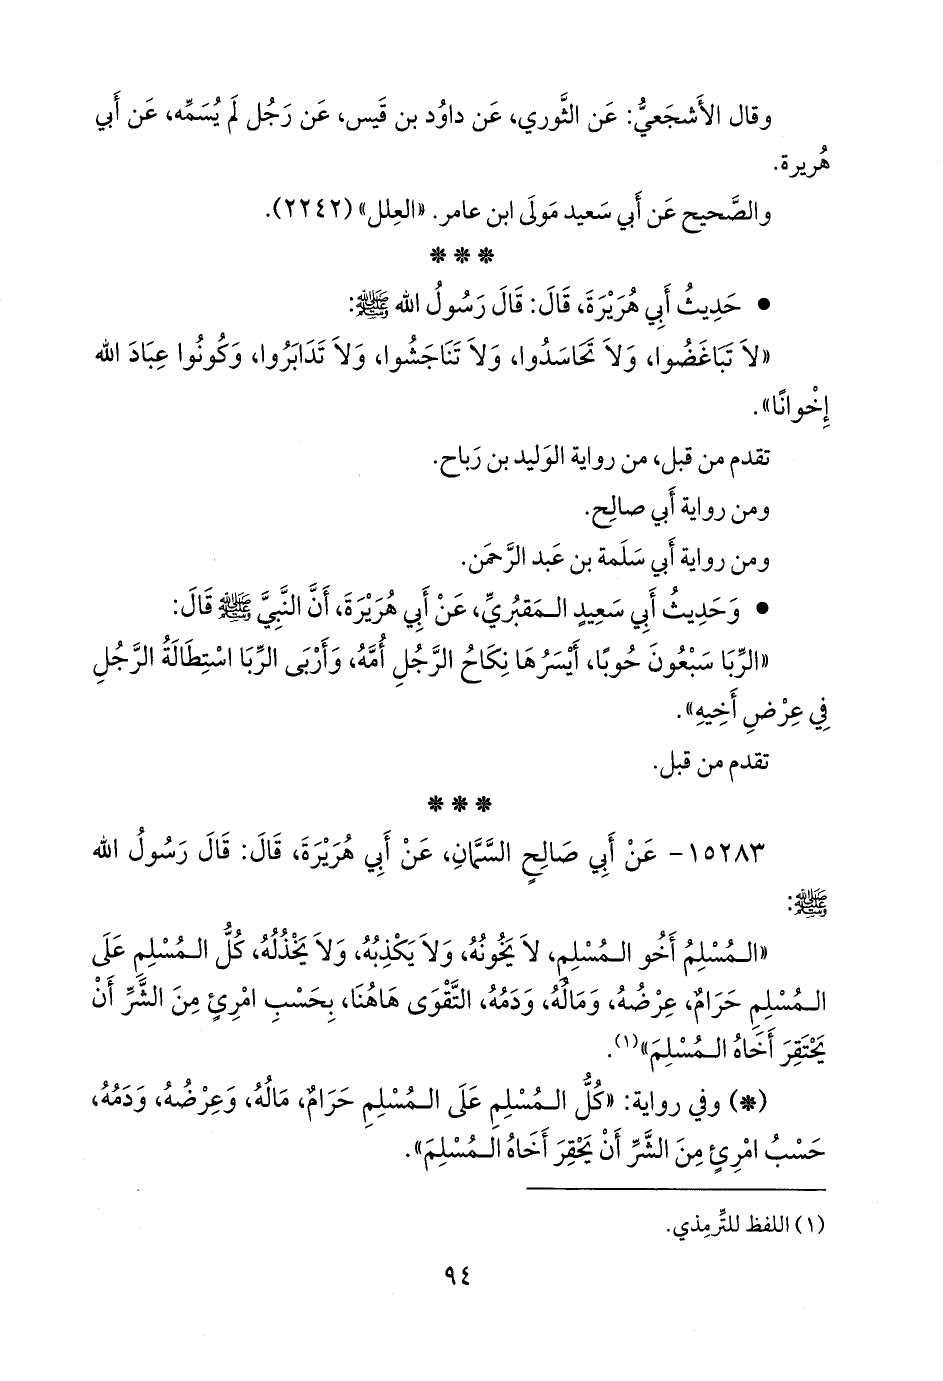 وقال الأَشجَعيُّ: عَن الثَّوري، عَن داوُد بن قَيس، عَن رَجُل لَم يُسَمِّه، عَن أَبي
هُريرة.
والصَّحيح عَن أَبي سَعيد مَولَى ابن عامر. «العِلل» (٢٢٤٢).
* * *
• حَدِيثُ أَبِي هُرَيْرَةَ، قَالَ: قَالَ رَسُولُ الله ﷺ:
«لاَ تَبَاغَضُوا، وَلاَ تَحَاسَدُوا، وَلاَ تَنَاجَشُوا، وَلاَ تَدَابَرُوا، وَكُونُوا عِبَادَ الله
إِخْوانًا».
تقدم من قبل، من رواية الوَليد بن رَباح.
ومن رواية أَبي صالِح.
ومن رواية أَبي سَلَمة بن عَبد الرَّحمَن.
• وَحَدِيثُ أَبِي سَعِيدٍ الـمَقبُريِّ، عَنْ أَبِي هُرَيْرَةَ، أَنَّ النَّبِيَّ ﷺ قَالَ:
«الرِّبَا سَبْعُونَ حُوبًا، أَيْسَرُهَا نِكَاحُ الرَّجُلِ أُمَّهُ، وَأَرْبَى الرِّبَا اسْتِطَالَةُ الرَّجُلِ
فِي عِرْضِ أَخِيهِ».
تقدم من قبل.
* * *
١٥٢٨٣- عَنْ أَبِي صَالِحٍ السَّمَّانِ، عَنْ أَبِي هُرَيْرَةَ، قَالَ: قَالَ رَسُولُ الله
ﷺ:
«الـمُسْلِمُ أَخُو الـمُسْلِمِ، لاَ يَخُونُهُ، وَلاَ يَكْذِبُهُ، وَلاَ يَخْذُلُهُ، كُلُّ الـمُسْلِمِ عَلَى
الـمُسْلِمِ حَرَامٌ، عِرْضُهُ، وَمَالُهُ، وَدَمُهُ، التَّقْوَى هَاهُنَا، بِحَسْبِ امْرِئٍ مِنَ الشَّرِّ أَنْ
يَحْتَقِرَ أَخَاهُ الـمُسْلِمَ»(١).
(*) وفي رواية: «كُلُّ الـمُسْلِمِ عَلَى الـمُسْلِمِ حَرَامٌ، مَالُهُ، وَعِرْضُهُ، وَدَمُهُ،
حَسْبُ امْرِئٍ مِنَ الشَّرِّ أَنْ يَحْقِرَ أَخَاهُ الـمُسْلِمَ».
(١) اللفظ للتِّرمِذي.
٩٤